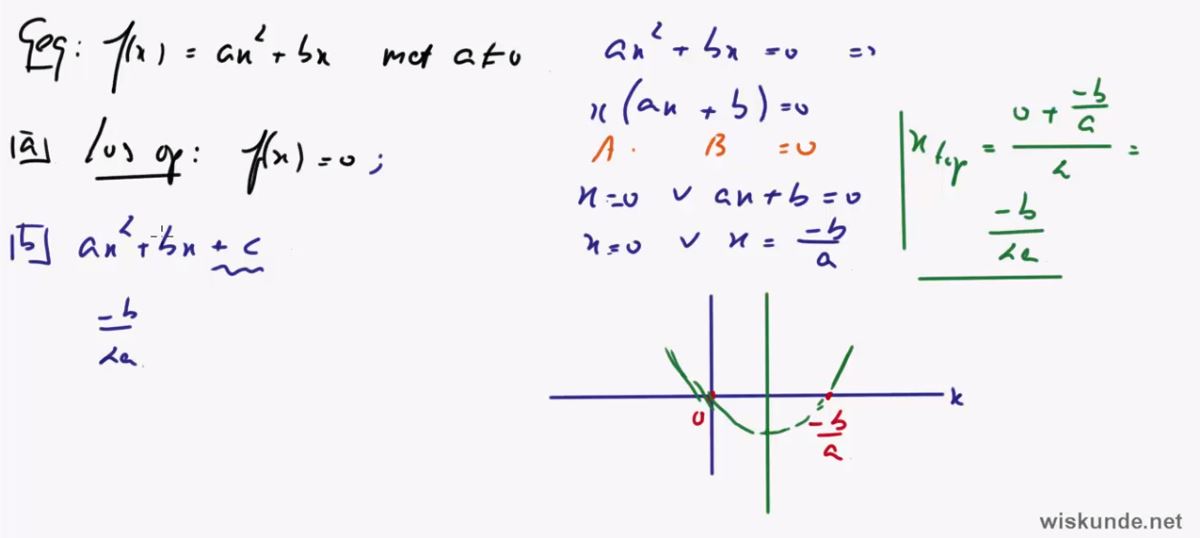 Geg: f(x) = ax² + bx met a ≠ 0
|a| Los op: f(x) = 0 ;
|b| ax² + bx + c
-b/2a
ax² + bx = 0 =>
x(ax + b) = 0
A · B = 0
x = 0 ∨ ax + b = 0
x = 0 ∨ x = -b/a
x top = (0 + -b/a)/2 =
-b/2a
x
0
-b/a
wiskunde.net